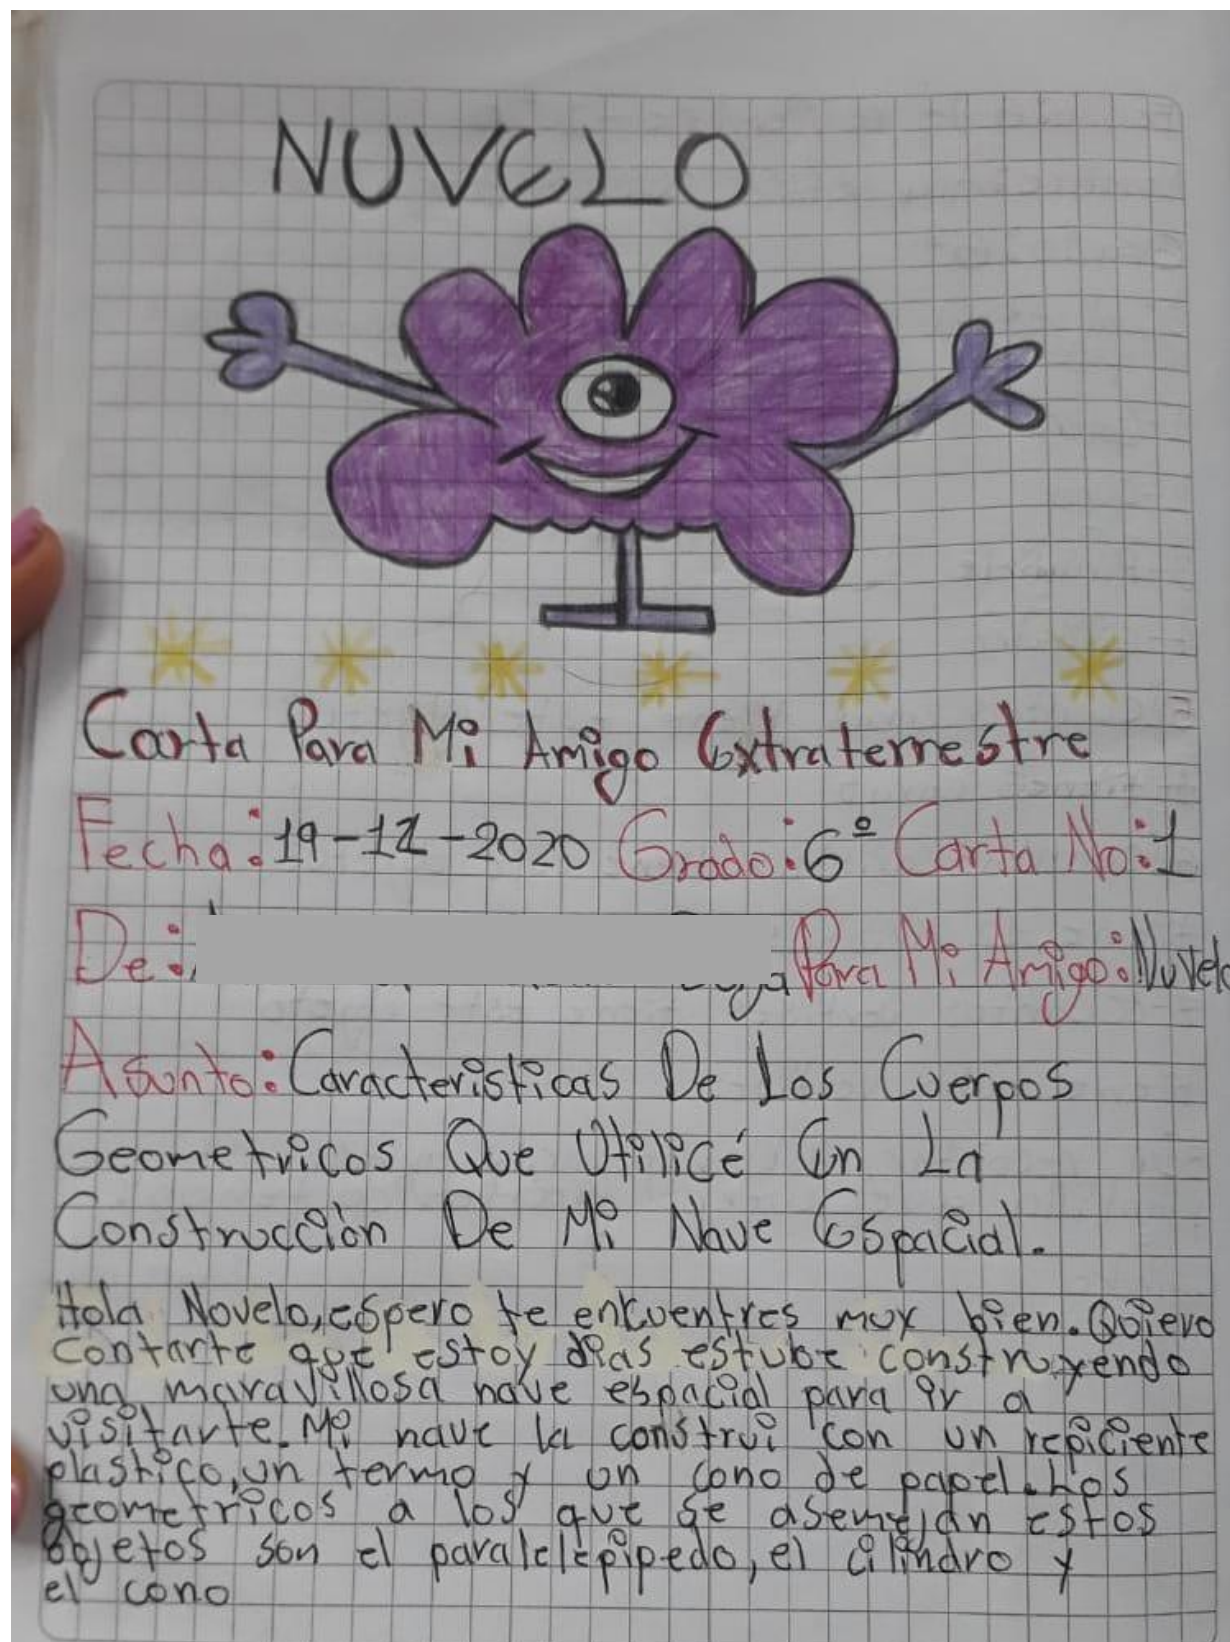 NUVELO
Carta Para Mi Amigo Extraterrestre
Fecha: 19-11-2020 Grado: 6º Carta No: 1
De: Para Mi Amigo: Nuvelo
Asunto: Caracteristicas De Los Cuerpos
Geometricos Que Utilicé En La
Construcción De Mi Nave Espacial.
Hola Novelo, espero te encuentres muy bien. Quiero
contarte que estoy dias estube construyendo
una maravillosa nave espacial para ir a
visitarte. Mi nave la construi con un repiciente
plastico, un termo y un cono de papel. Los
geometricos a los que se asemejan estos
objetos son el paralelepipedo, el cilindro y
el cono